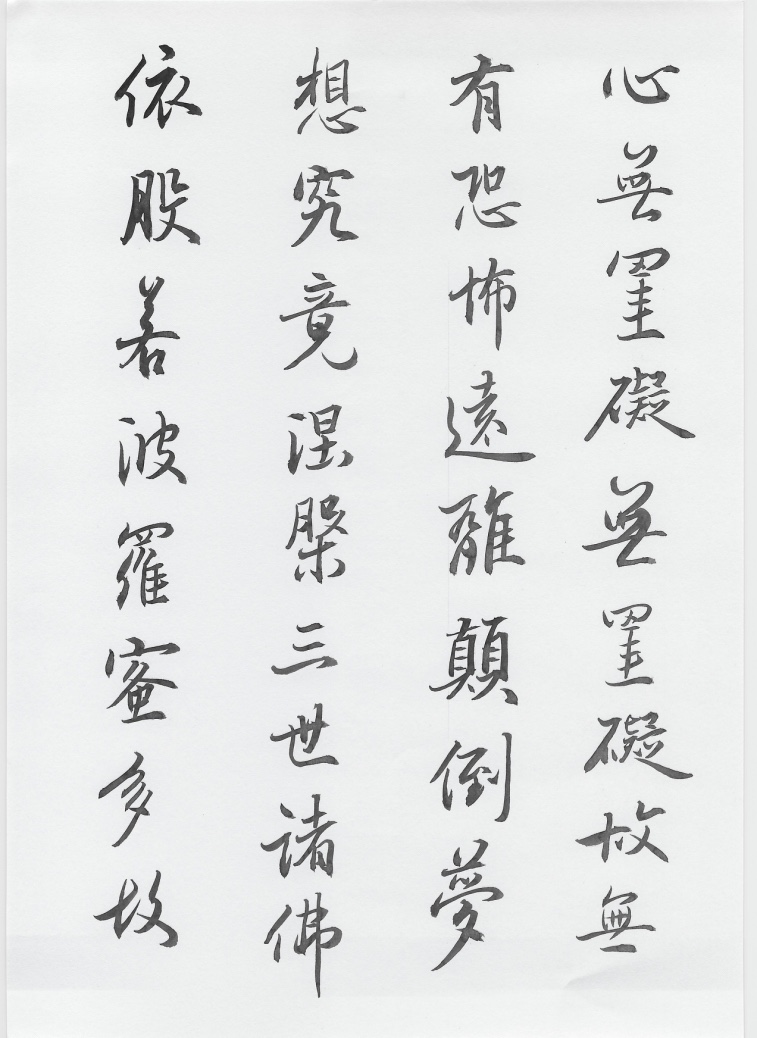 心無罣礙無罣礙故無
有恐怖遠離顛倒夢
想究竟涅槃三世諸佛
依般若波羅蜜多故